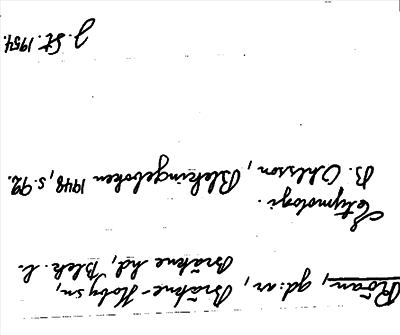 Röan, gd:ar, Bräkne-Hoby sn,
Bräkne hd, Blek. l.
Etymologi.
B. Ohlsson, Blekingeboken 1948, s. 92.
J. St. 1954.